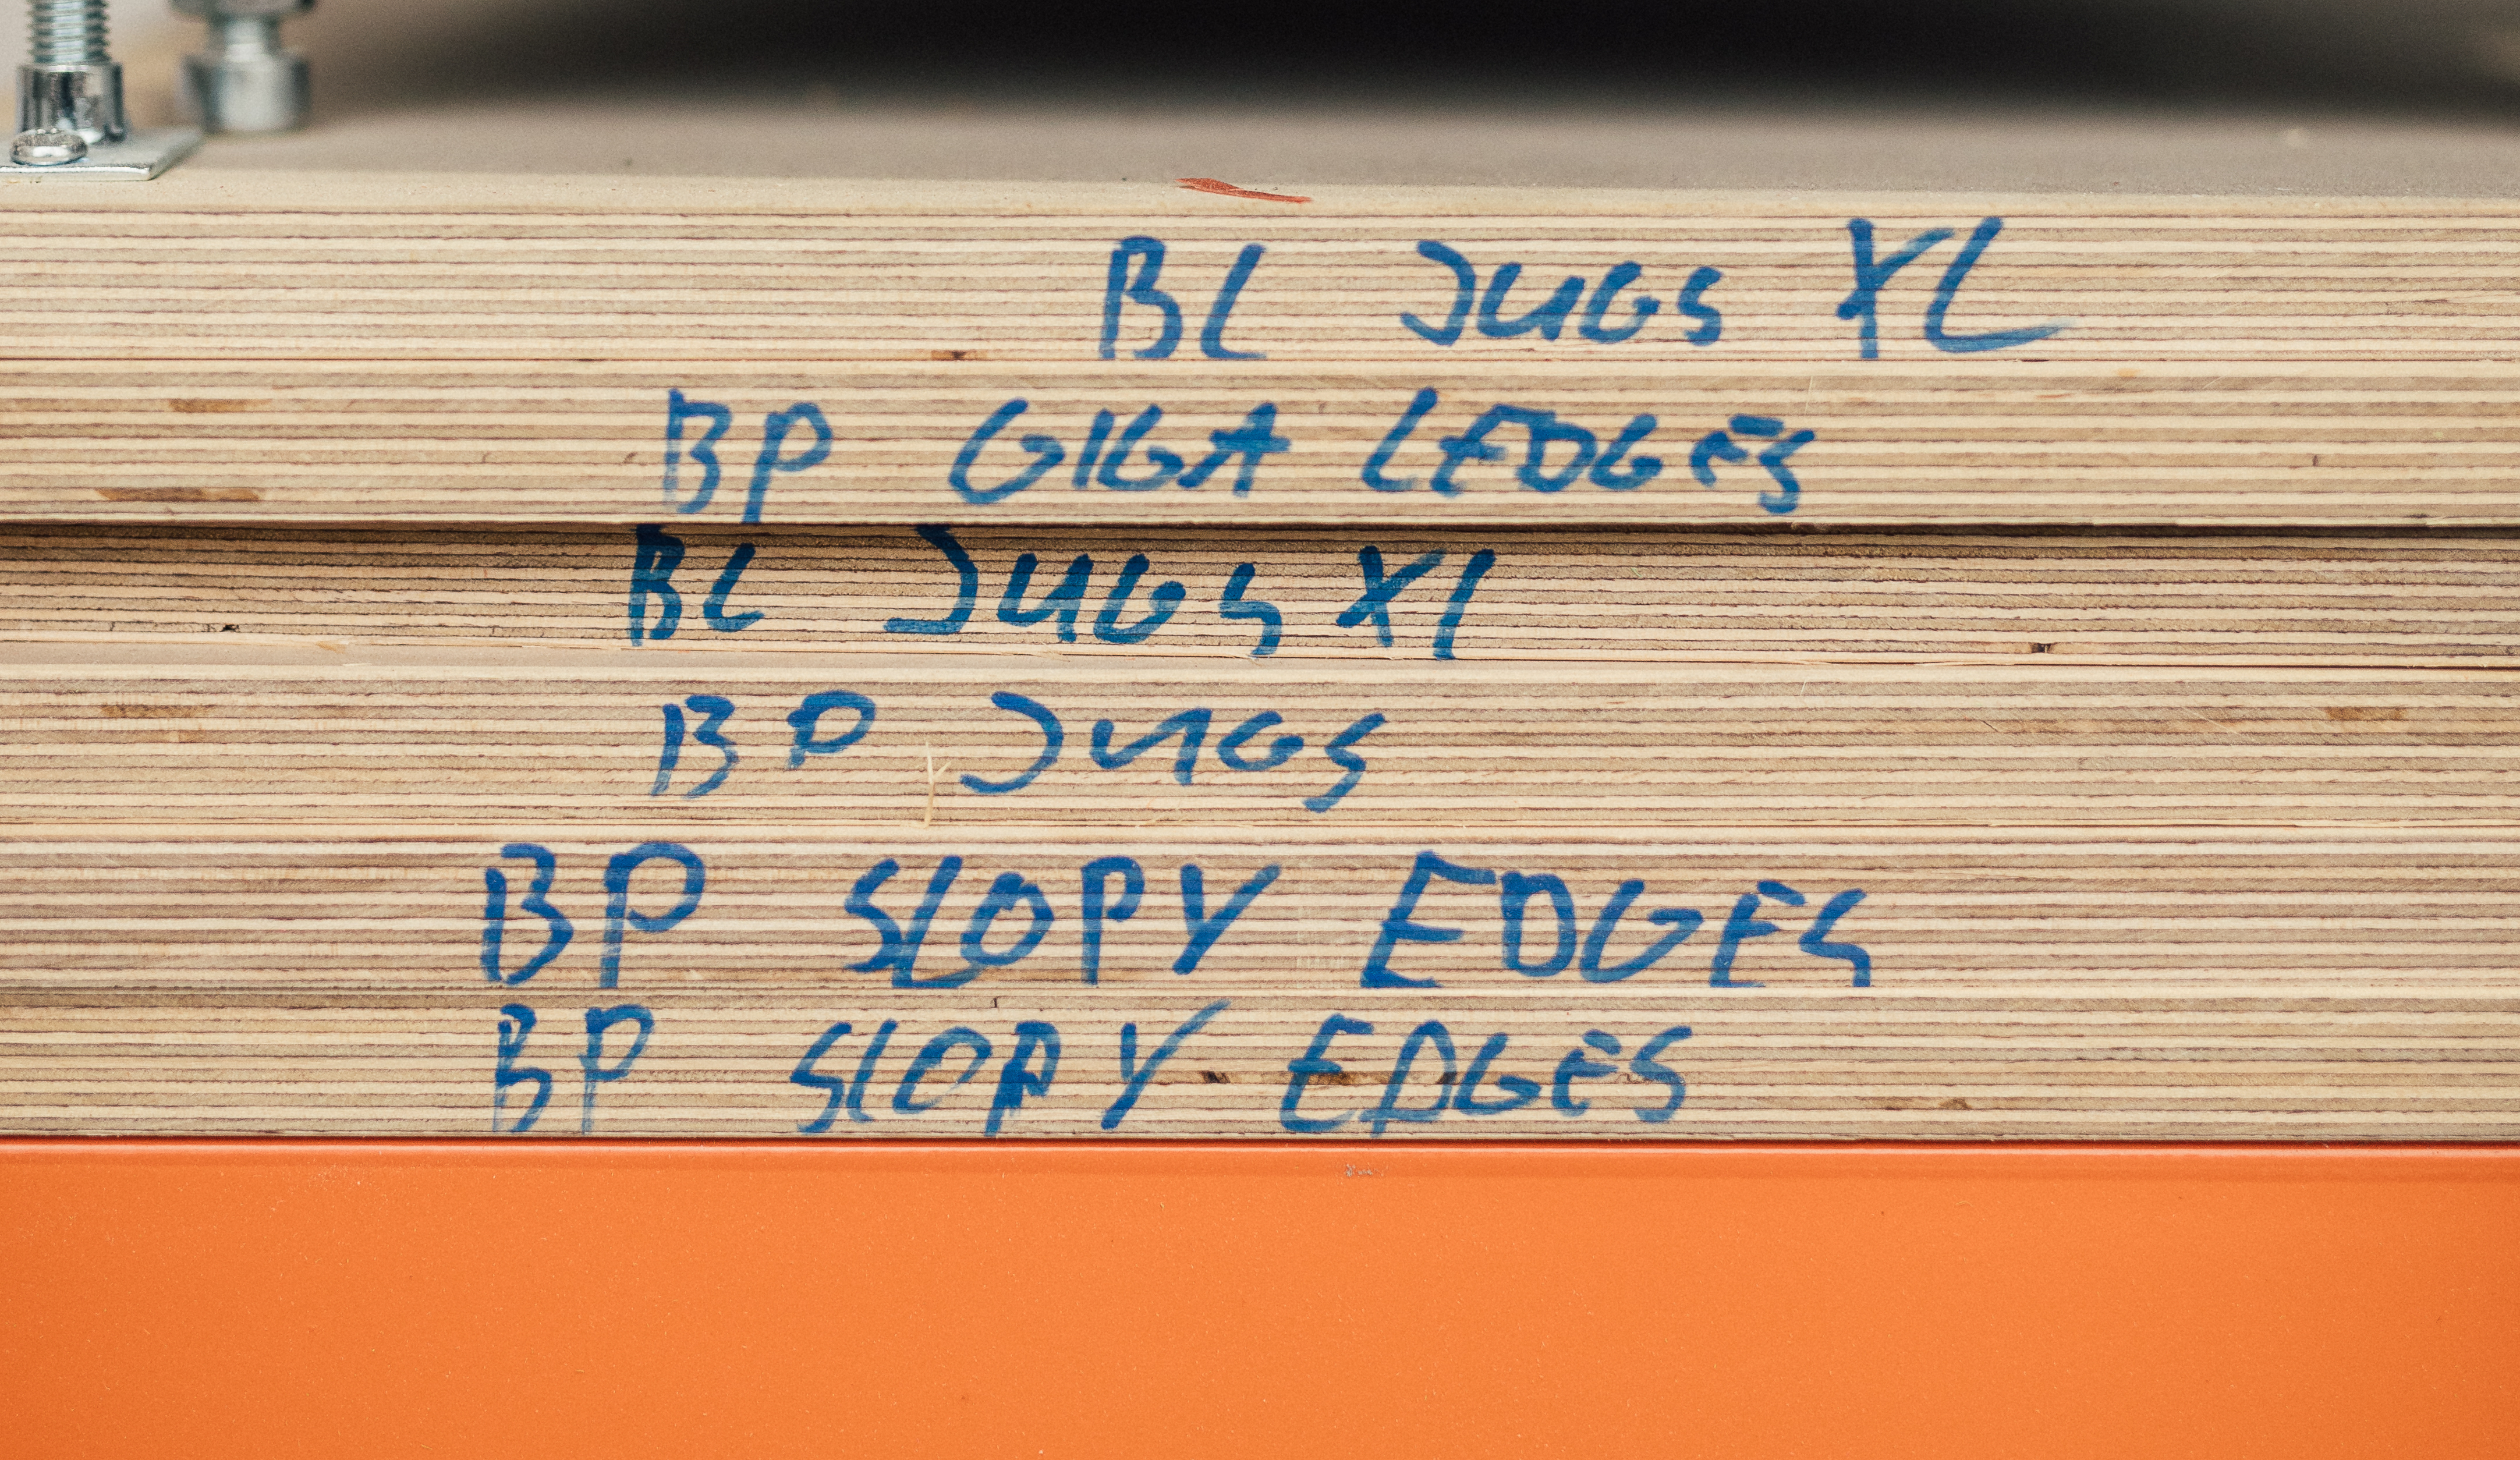 BL JUGS XL
BP GIGA LEDGES
BL JUGS XL
BP JUGS
BP SLOPY EDGES
BP SLOPY EDGES